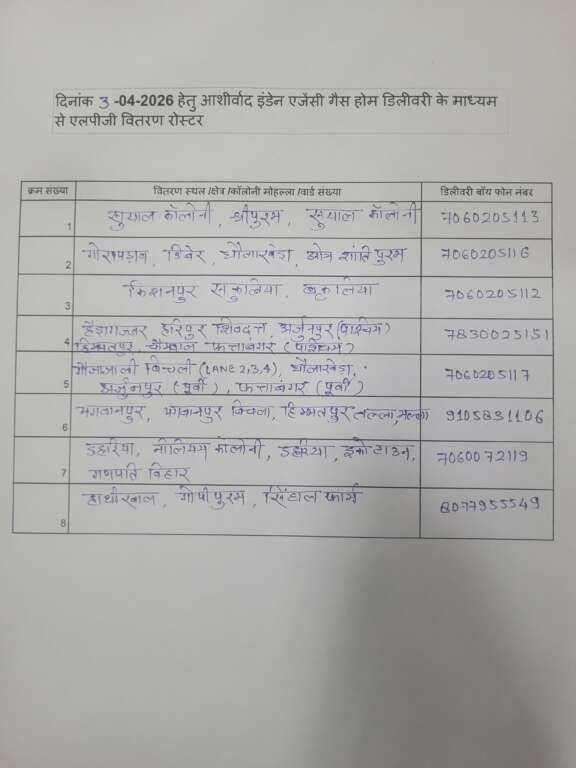 दिनांक 3 -04-2026 हेतु आशीर्वाद इंडेन एजेंसी गैस होम डिलीवरी के माध्यम
से एलपीजी वितरण रोस्टर
क्रम संख्या वितरण स्थल /क्षेत्र /कॉलोनी मोहल्ला /वार्ड संख्या डिलीवरी बॉय फोन नंबर
1 सुयाल कॉलोनी, श्रीपुरम, सुयाल कॉलोनी 7060205113
2 गोरापड़ाव, धौलाखेड़ा, शांतिपुरम 7060205116
3 किशनपुर सकुलिया, 7060205112
4 हैड़ागज्जर हरिपुर शिवदत्त, अर्जुनपुर (पश्चिम) 7830025151
हिम्मतपुर, फत्ताबंगर (पश्चिम)
5 बिचली (LANE 2,3,4), धौलाखेड़ा, 7060205117
अर्जुनपुर (पूर्वी), फत्ताबंगर (पूर्वी)
6 भगवानपुर, भगवानपुर बिचला, हिम्मतपुर तल्ला, मल्ला 9105831106
7 डहरिया, नीलियम कॉलोनी, डहरिया, इको टाउन, 7060072119
गणपति विहार
8 हाथीखाल, गोपीपुरम, सिंहाल फार्म 8077955549